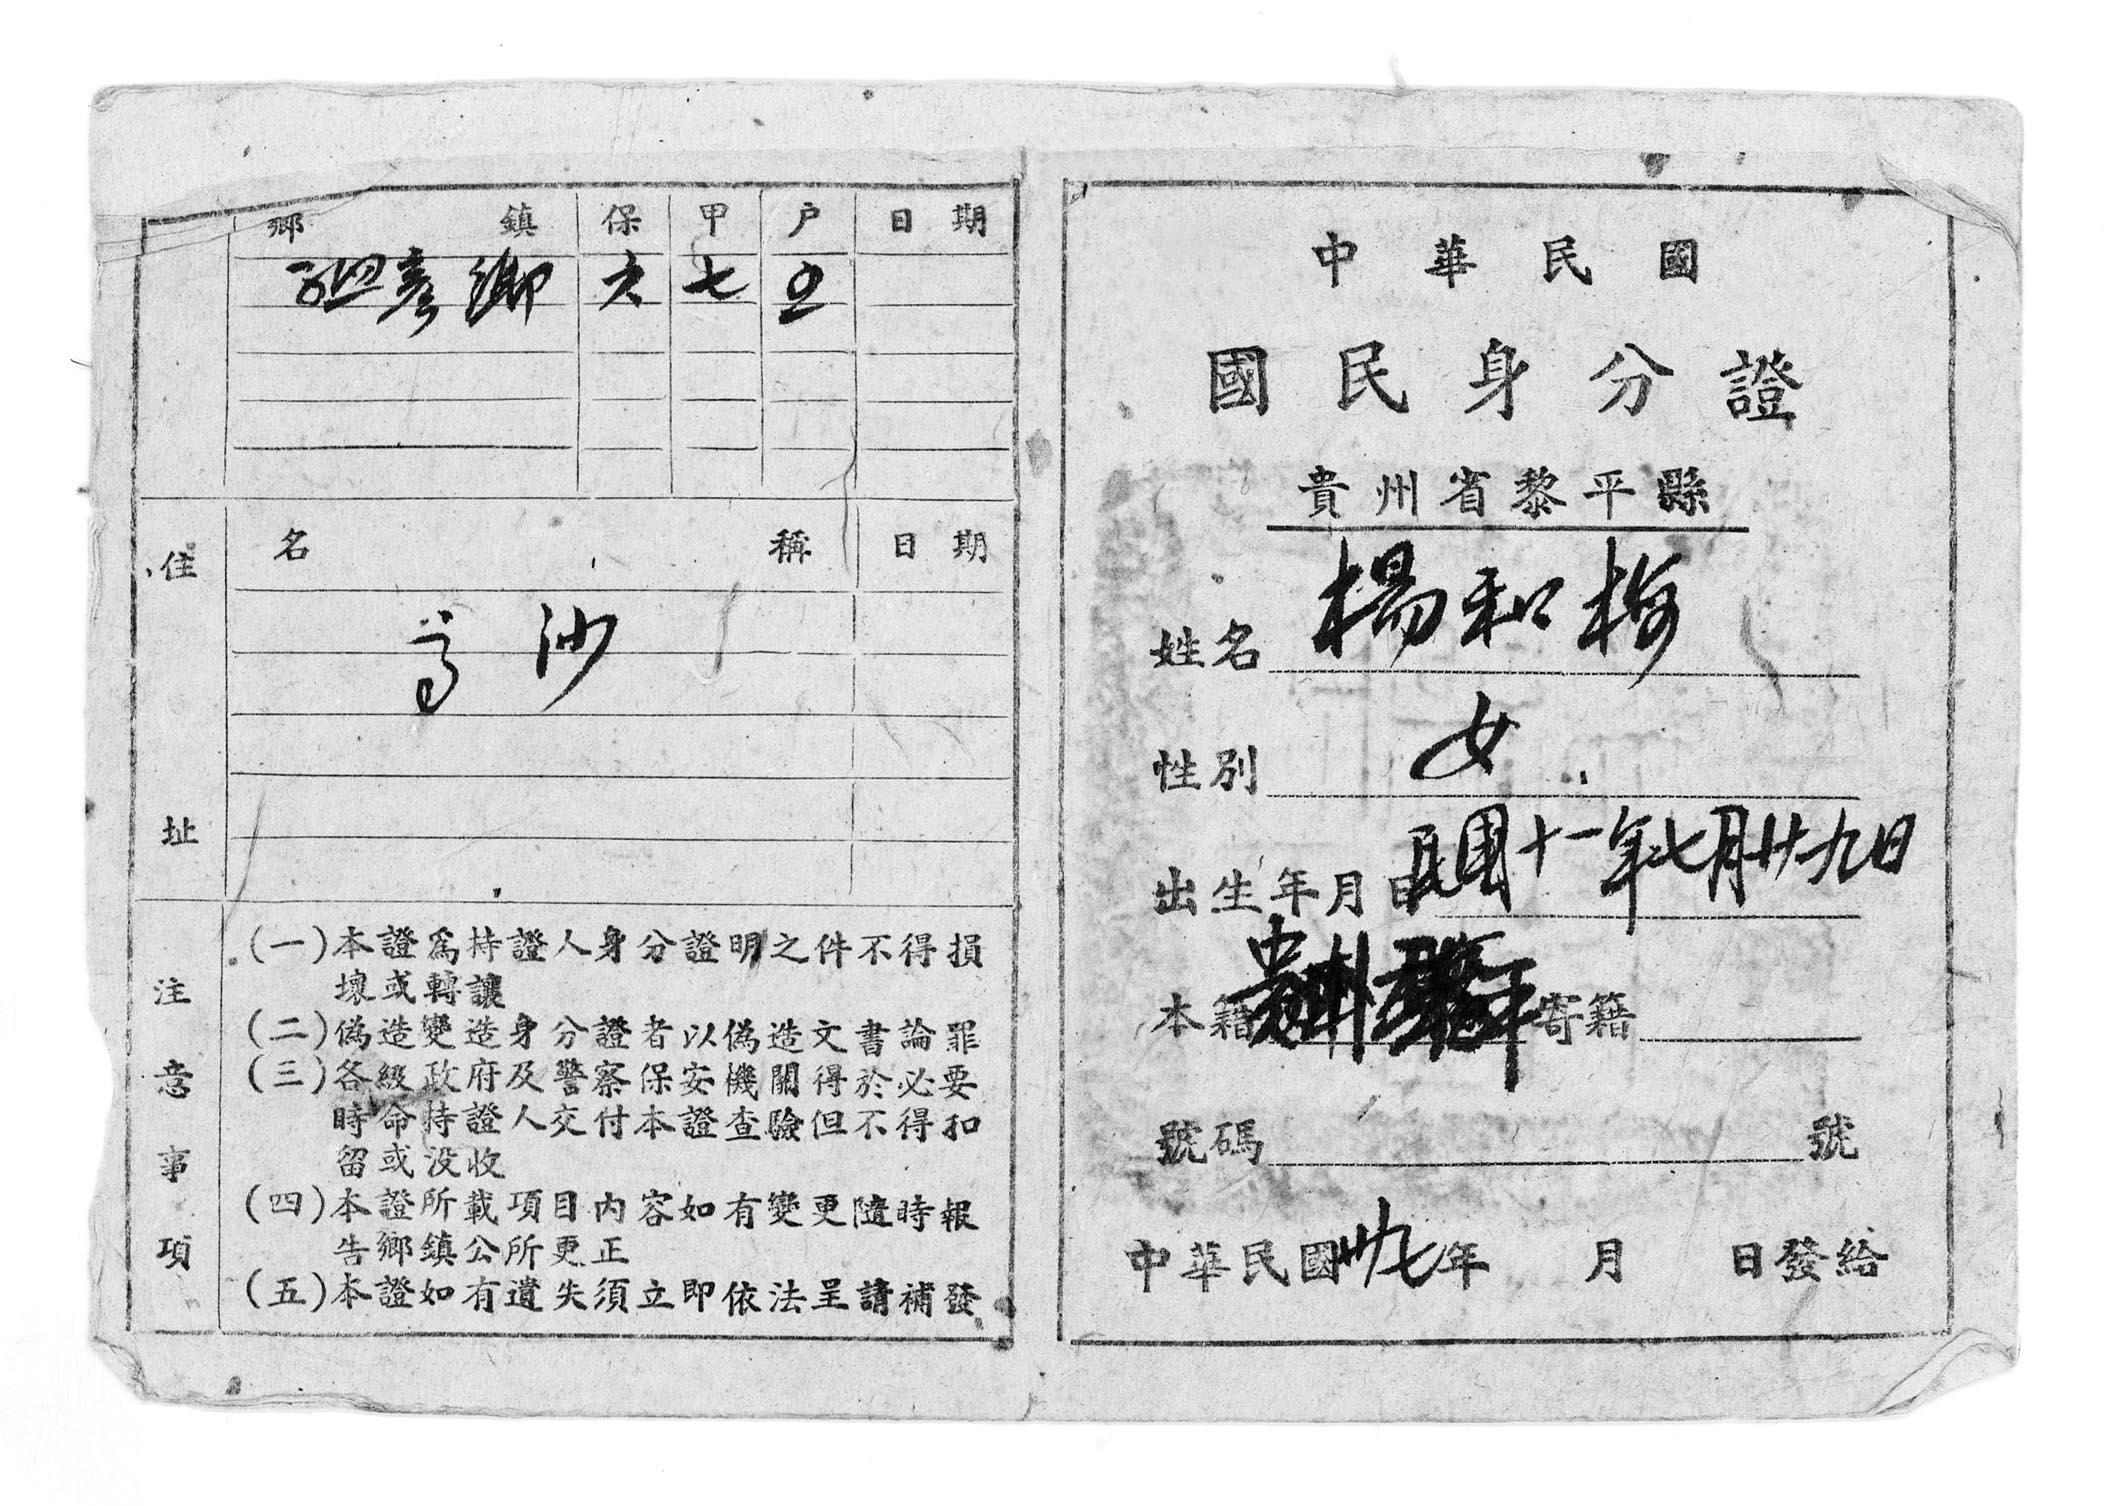 鄉鎮 保 甲 户 日期
鄉 六 七 五
住址
名稱 日期
高沙
注意事項
(一)本證爲持證人身分證明之件不得損
壞或轉讓
(二)偽造變造身分證者以偽造文書論罪
(三)各級政府及警察保安機關得於必要
時命持證人交付本證查驗但不得扣
留或没收
(四)本證所載項目内容如有變更隨時報
告鄉鎮公所更正
(五)本證如有遺失須立即依法呈請補發
中華民國
國民身分證
貴州省黎平縣
姓名 楊和梅
性別 女
出生年月日 民國十一年七月廿九日
本籍 貴州黎平 寄籍
號碼 號
中華民國卅七年 月 日發給